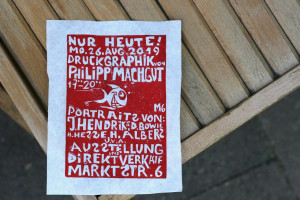 NUR HEUTE!
MO. 26. AUG. 2019
DRUCKGRAPHIK VON
PHILIPP MACHGUT
17-20
MG
PORTRAITS VON:
J. HENDRIX D. BOWIE
H. HESSE H. ALBERS
U.V.A.
AUSSTELLUNG
DIREKTVERKAUF
MARKTSTR. 6